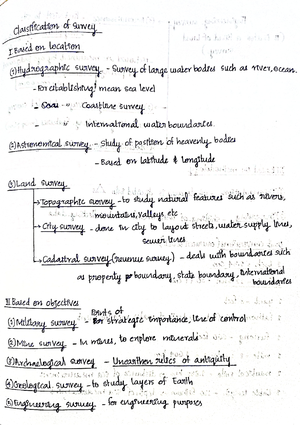 Classification of Survey
I Based on location
(1) Hydrographic survey - Survey of large water bodies such as river, ocean.
- For establishing mean sea level
- " Coastline survey
- " International water boundaries.
(2) Astronomical survey - Study of position of heavenly bodies
- Based on latitude & longitude
(3) Land survey
Topographic survey - to study natural features such as rivers,
mountains, valleys, etc
City survey - done in city to layout streets, water supply lines,
sewer lines
Cadastral survey (revenue survey) - deals with boundaries such
as property boundary, state boundary, international
boundaries
II Based on objectives
(1) Military survey - Points of strategic importance, line of control
(2) Mine survey - In mines, to explore minerals
(3) Archeological survey - Unearthen relics of antiquity
(4) Geological survey - to study layers of Earth
(5) Engineering survey - for engineering purposes